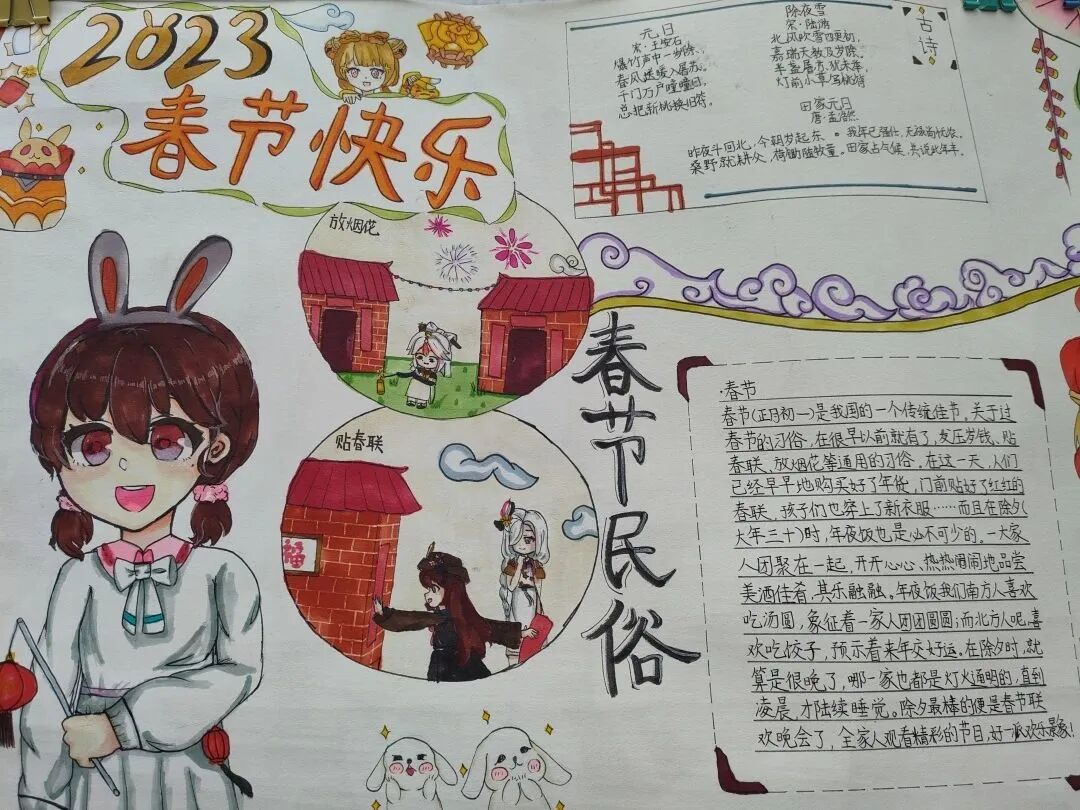 2023
春节快乐
元日
宋·王安石
爆竹声中一岁除,
春风送暖入屠苏。
千门万户曈曈日,
总把新桃换旧符。
除夜雪
宋·陆游
北风吹雪四更初,
嘉瑞天教及岁除。
半盏屠苏犹未举,
灯前小草写桃符
古诗
田家元日
唐·孟浩然
昨夜斗回北,今朝岁起东。我年已强仕,无禄尚忧农。
桑野就耕父,荷锄随牧童。田家占气候,共说此年丰。
放烟花
贴春联
福
春节民俗
·春节
春节(正月初一)是我国的一个传统佳节,关于过
春节的习俗,在很早以前就有了,发压岁钱、贴
春联、放烟花等通用的习俗。在这一天,人们
已经早早地购买好了年货,门前贴好了红红的
春联、孩子们也穿上了新衣服……而且在除夕(
大年三十)时,年夜饭也是必不可少的。一大家
人团聚在一起,开开心心、热热闹闹地品尝
美酒佳肴,其乐融融。年夜饭我们南方人喜欢
吃汤圆,象征着一家人团团圆圆;而北方人呢,喜
欢吃饺子,预示着来年交好运。在除夕时,就
算是很晚了,哪一家也都是灯火通明的,直到
凌晨,才陆续睡觉。除夕最棒的便是春节联
欢晚会了,全家人观看精彩的节目,好一派欢乐景象!